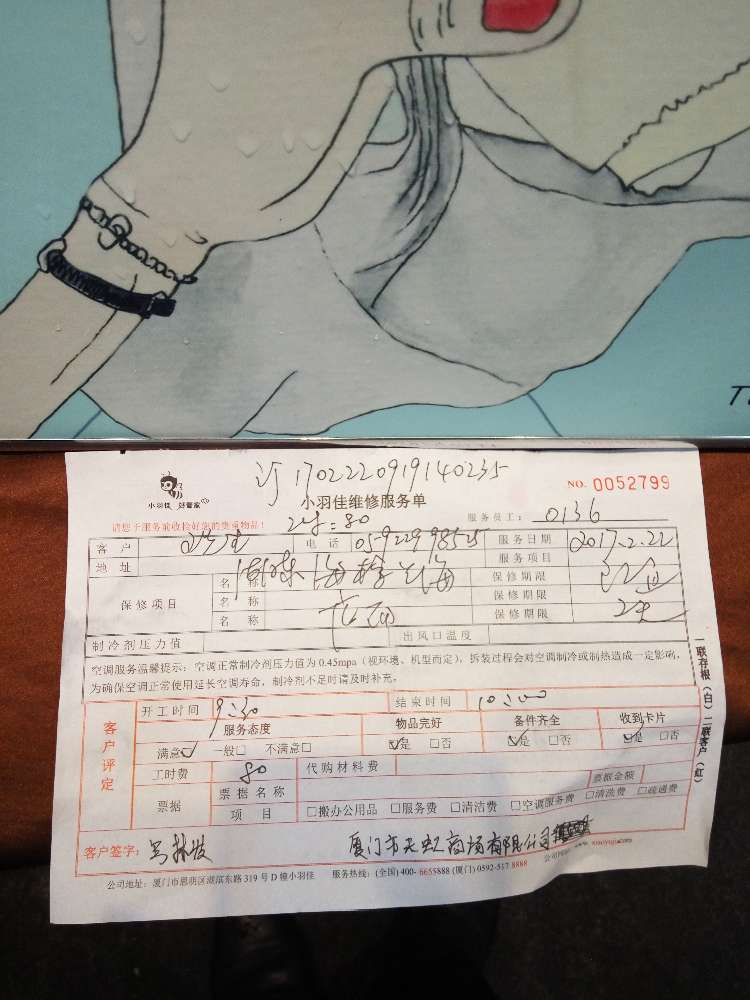 T
订1702220919140235
小羽佳 好管家
小羽佳维修服务单
NO. 0052799
请您于服务前收捡好您的贵重物品!
=80
服务员工: 0136
客 户
电 话
服务日期 2017.2.22
地 址
服务项目
保修项目
名 称
保修期限
名 称
保修期限
名 称
保修期限
制冷剂压力值
出风口温度
空调服务温馨提示:空调正常制冷剂压力值为 0.45mpa(视环境、机型而定),拆装过程会对空调制冷或制热造成一定影响,
为确保空调正常使用延长空调寿命,制冷剂不足时请及时补充。
客户评定
开工时间 9:30
结束时间 10:00
服务态度
物品完好
备件齐全
收到卡片
满意☑ 一般□ 不满意□
☑是 □否
☑是 □否
☑是 □否
工时费 80
代购材料费
票据
票据名称
票据金额
项 目
□搬办公用品 □服务费 □清洁费 □空调服务费 □清洗费 □疏通费
客户签字:
厦门市天虹商场有限公司
公司地址:厦门市思明区湖滨东路 319 号 D 幢小羽佳
服务热线:(全国) 400- 6655888 (厦门) 0592-517 8888
一联存根(白)二联客户(红)